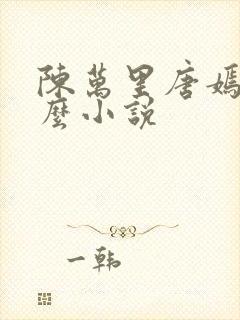 陳萬里唐嫣
麼小說
一韓